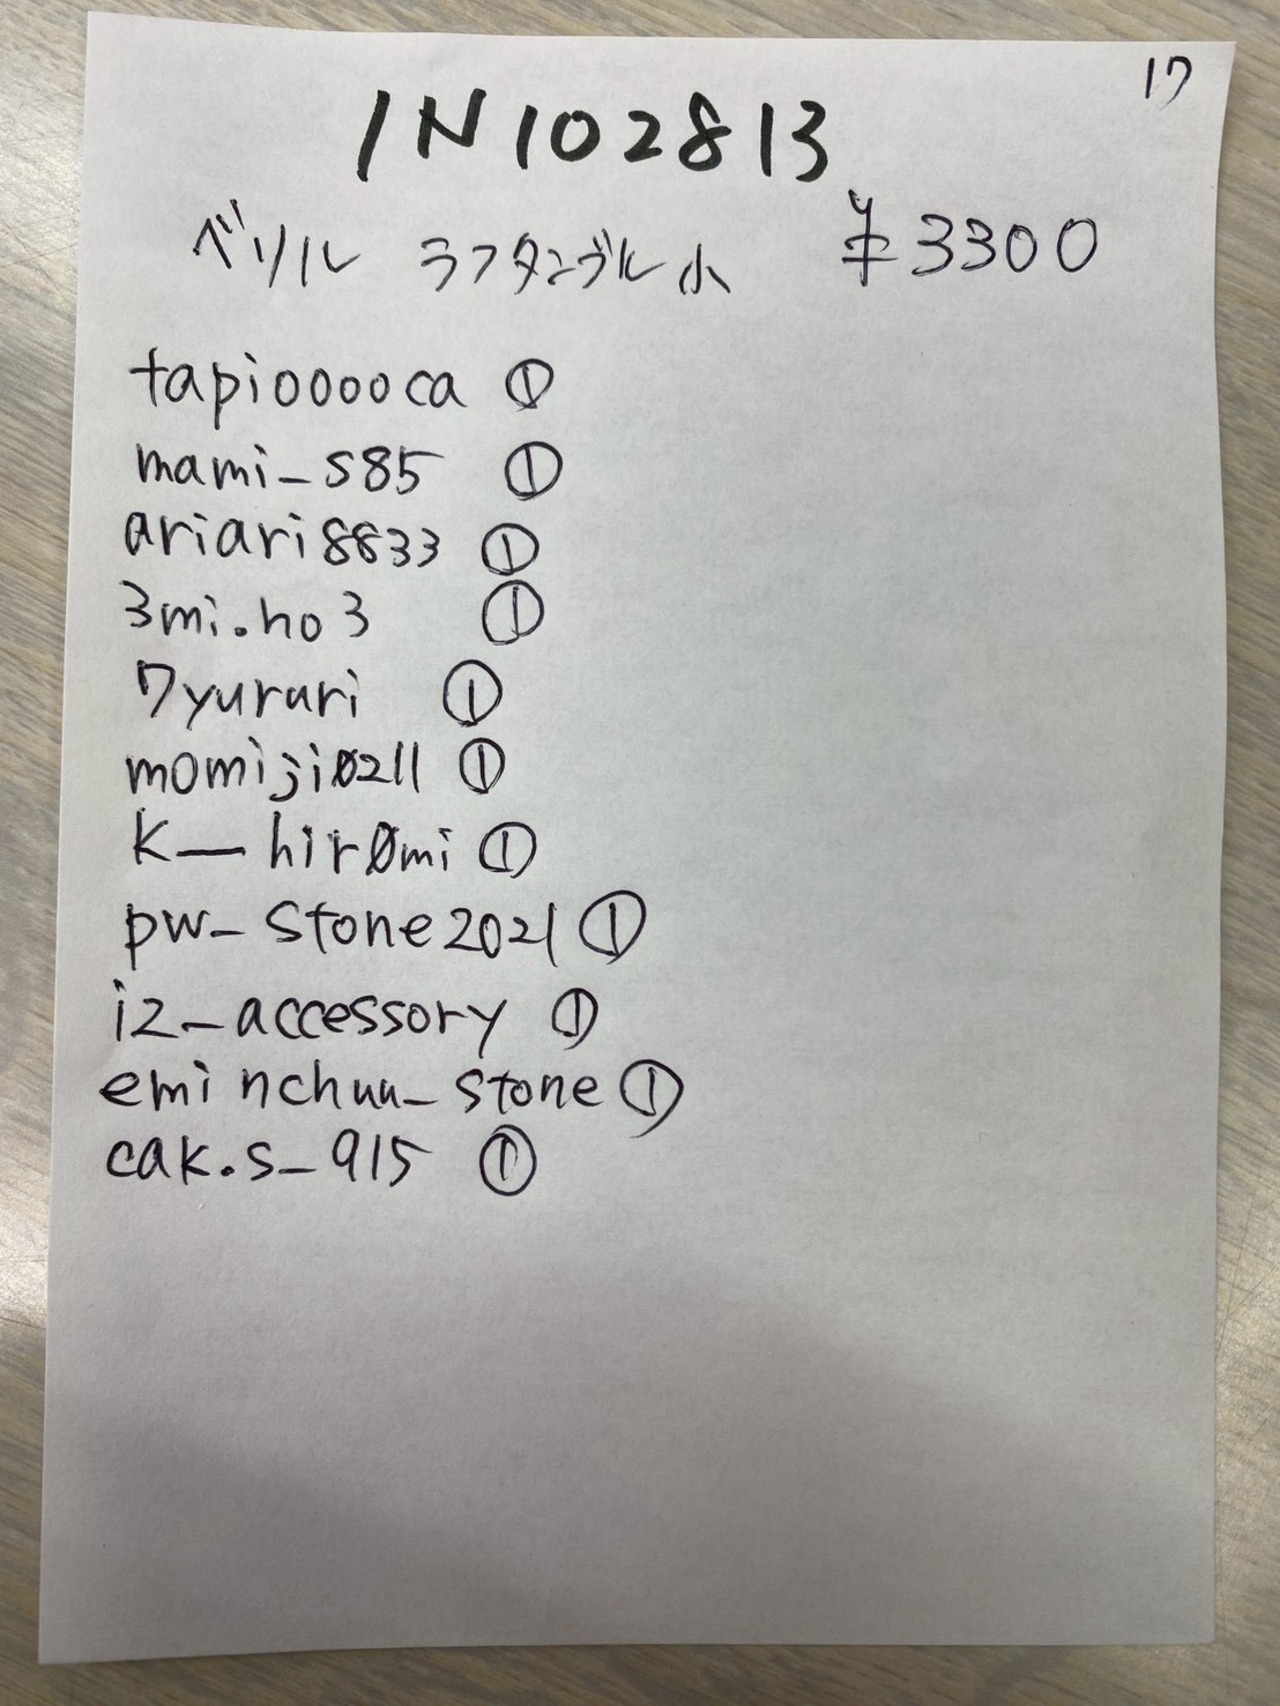 17
IN102813
ベリル ラフタンブル小 ¥3300
tapiooooca ①
mami_s85 ①
ariari8833 ①
3mi.ho3 ①
7yururi ①
momiji0211 ①
K__hir0mi ①
pw_stone2021 ①
iz_accessory ①
eminchuu_stone ①
cak.s_915 ①